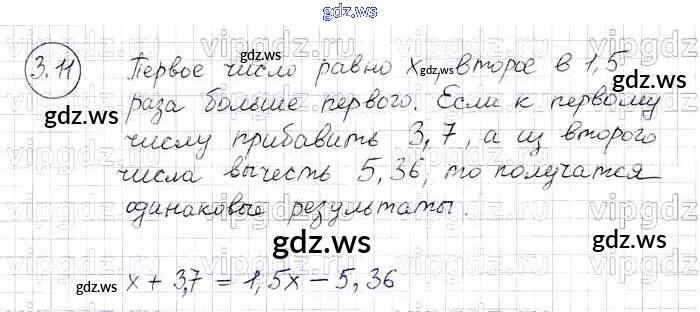 gdz.ws
3.11 Первое число равно x, второе в 1,5
gdz.ws
gdz.ws
gdz.ws
раза больше первого. Если к первому
gdz.ws
числу прибавить 3,7, а из второго
числа вычесть 5,36, то получатся
gdz.ws
gdz.ws
одинаковые результаты.
gdz.ws
gdz.ws
gdz.ws
x + 3,7 = 1,5x - 5,36
gdz.ws